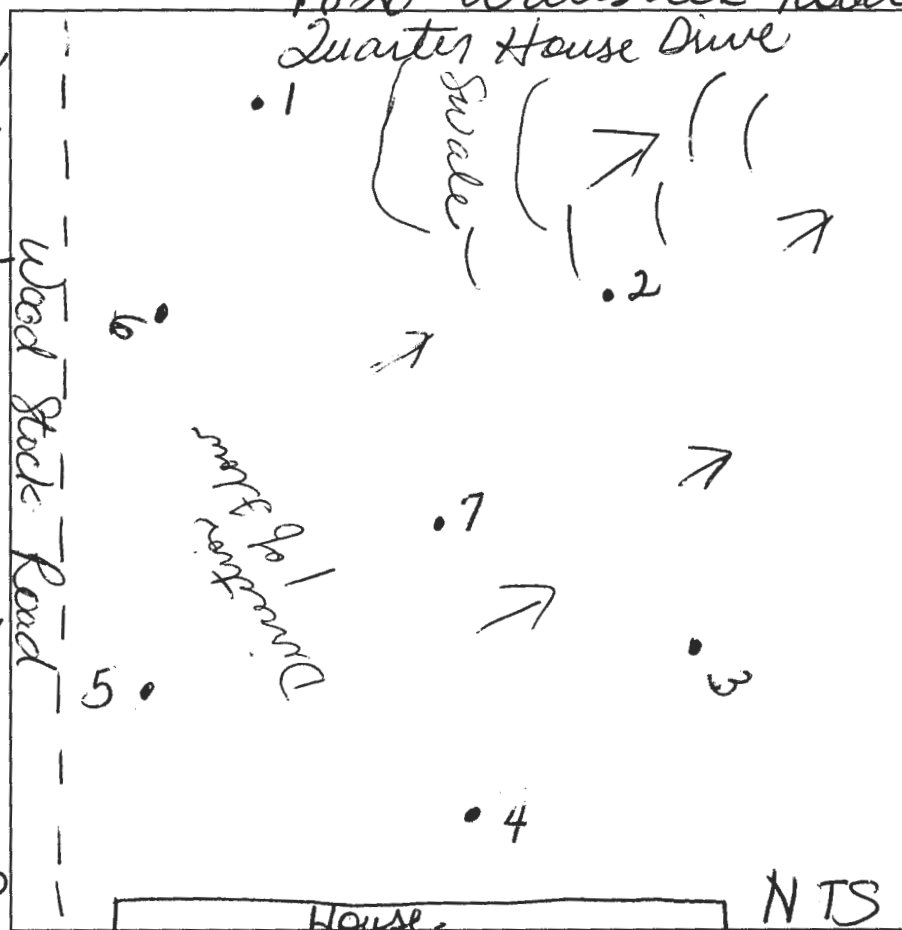 Quarter House Drive
1
Swale
2
6
Wood Stock Road
Direction
of flow
7
3
5
4
House
NTS